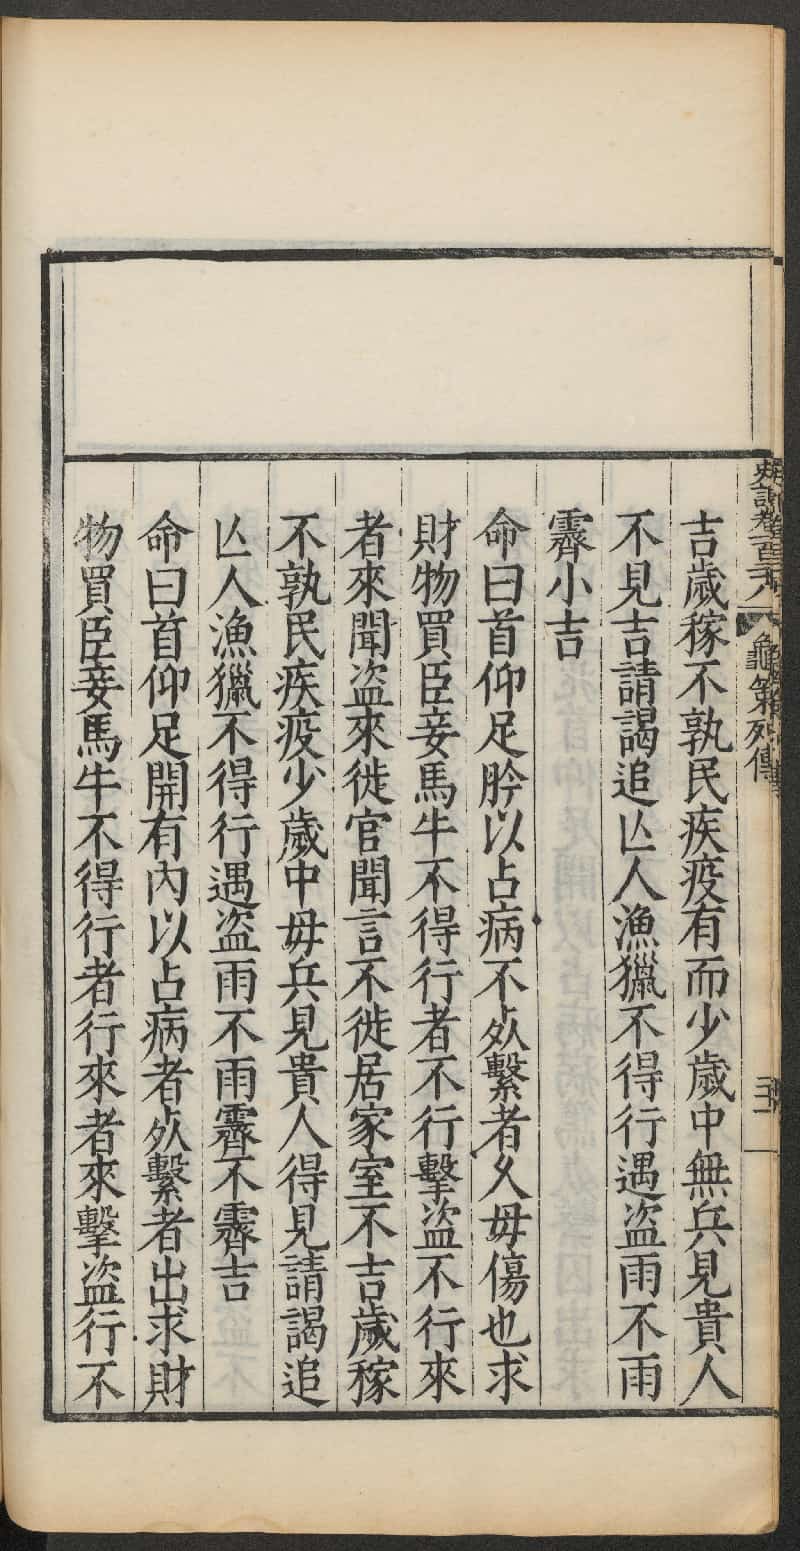 史記卷一百二十八 龜筴列傳 三十一
吉歲稼不孰民疾疫有而少歲中無兵見貴人
不見吉請謁追亾人漁獵不得行遇盜雨不雨
霽小吉
命曰首仰足肣以占病不㱙繫者久毋傷也求
財物買臣妾馬牛不得行者不行擊盜不行來
者來聞盜來徙官聞言不徙居家室不吉歲稼
不孰民疾疫少歲中毋兵見貴人得見請謁追
亾人漁獵不得行遇盜雨不雨霽不霽吉
命曰首仰足開有內以占病者㱙繫者出求財
物買臣妾馬牛不得行者行來者來擊盜行不